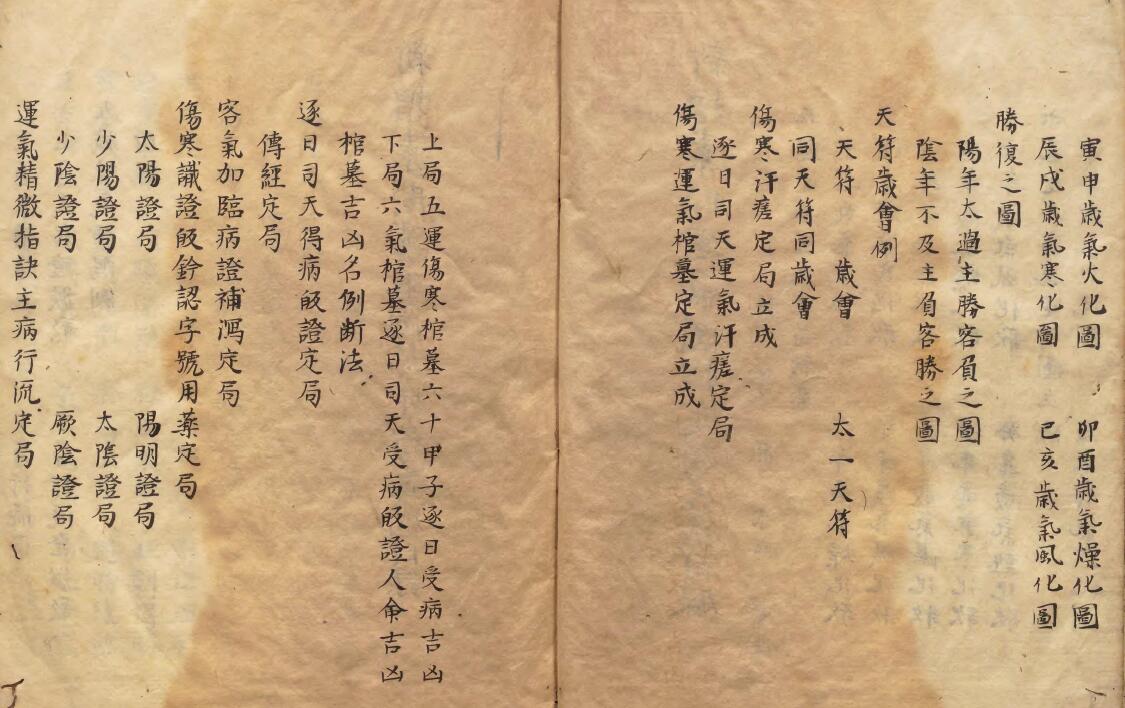 寅申歲氣火化圖　卯酉歲氣燥化圖
辰戌歲氣寒化圖　己亥歲氣風化圖
勝復之圖
陽年太過主勝客負之圖
陰年不及主負客勝之圖
天符歲會例
天符　歲會　太一天符
同天符同歲會
傷寒汗瘥定局立成
逐日司天運氣汗瘥定局
傷寒運氣棺墓定局立成
上局五運傷寒棺墓六十甲子逐日受病吉凶
下局六氣棺墓逐日司天受病㽹證人命吉凶
棺墓吉凶名例断法
逐日司天得病㽹證定局
傳經定局
客氣加臨病證補瀉定局
傷寒識證㽹鈐認字號用藥定局
太陽證局　陽明證局
少陽證局　太陰證局
少陰證局　厥陰證局
運氣精微指訣主病行沉定局